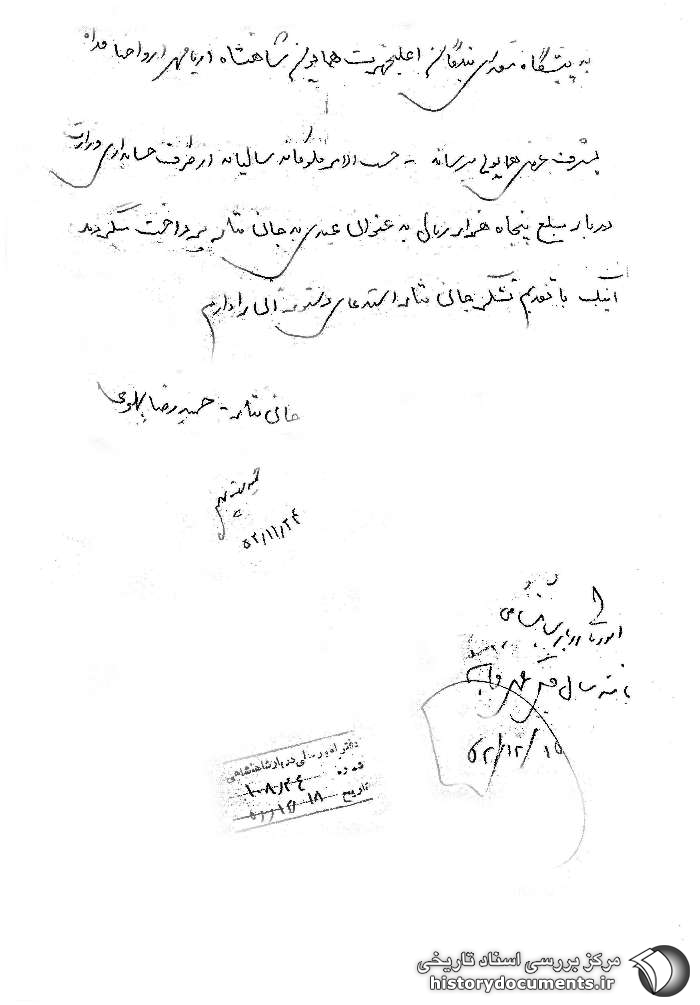 به پیشگاه مقدس بندگان اعلیحضرت همایون شاهنشاه آریامهر ارواحنا فداه
بشرف عرض همایونی میرساند - حسب الامر ملوکانه سالیانه از طرف حسابداری وزارت
دربار مبلغ پنجاه هزار ریال به عنوان عیدی به جان نثار پرداخت میگردید
اینک با تقدیم تشکر جان نثار استدعای دستور آنرا دارم
جان نثار - حمیدرضا پهلوی
۵۲/۱۱/۲۴
مانند سال قبل
۵۲/۱۲/۱۵
دفتر امور مالی دربار شاهنشاهی
شماره
تاریخ ۱۸
مرکز بررسی اسناد تاریخی
historydocuments.ir